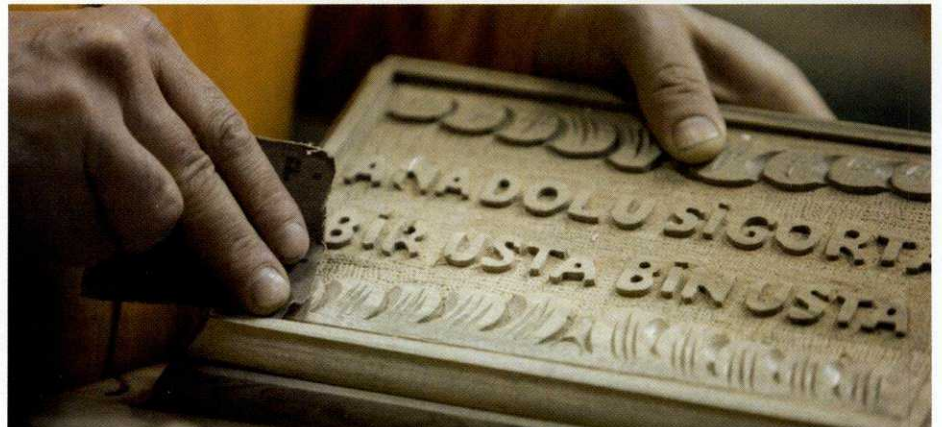 ANADOLU SİGORTA
BİR USTA BİN USTA